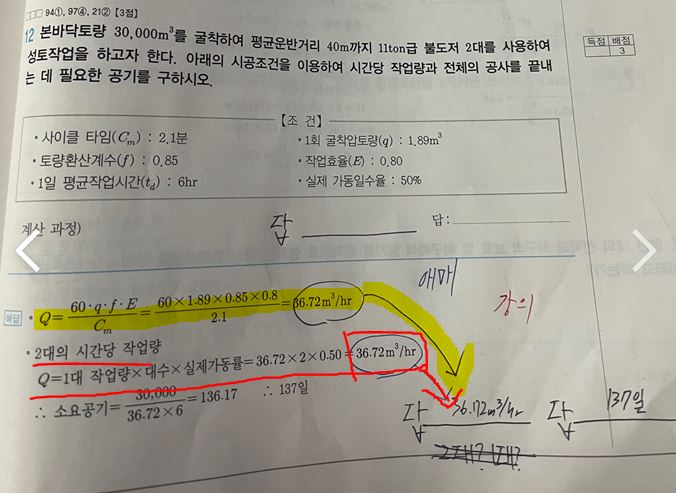 94①, 97④, 21② 【3점】
12 본바닥토량 30,000m³를 굴착하여 평균운반거리 40m까지 11ton급 불도저 2대를 사용하여
성토작업을 하고자 한다. 아래의 시공조건을 이용하여 시간당 작업량과 전체의 공사를 끝내
는 데 필요한 공기를 구하시오.
득점 배점
3
【조 건】
• 사이클 타임(Cm) : 2.1분
• 1회 굴착압토량(q) : 1.89m³
• 토량환산계수(f) : 0.85
• 작업효율(E) : 0.80
• 1일 평균작업시간(td) : 6hr
• 실제 가동일수율 : 50%
계산 과정)
답
답 :
애매
강의
해답 • Q = 60·q·f·E / Cm = 60×1.89×0.85×0.8 / 2.1 = 36.72m³/hr
• 2대의 시간당 작업량
Q=1대 작업량×대수×실제가동률=36.72×2×0.50=36.72m³/hr
∴ 소요공기= 30,000 / 36.72×6 =136.17 ∴ 137일
답 36.72m³/hr
답 137일
2대? 1대?